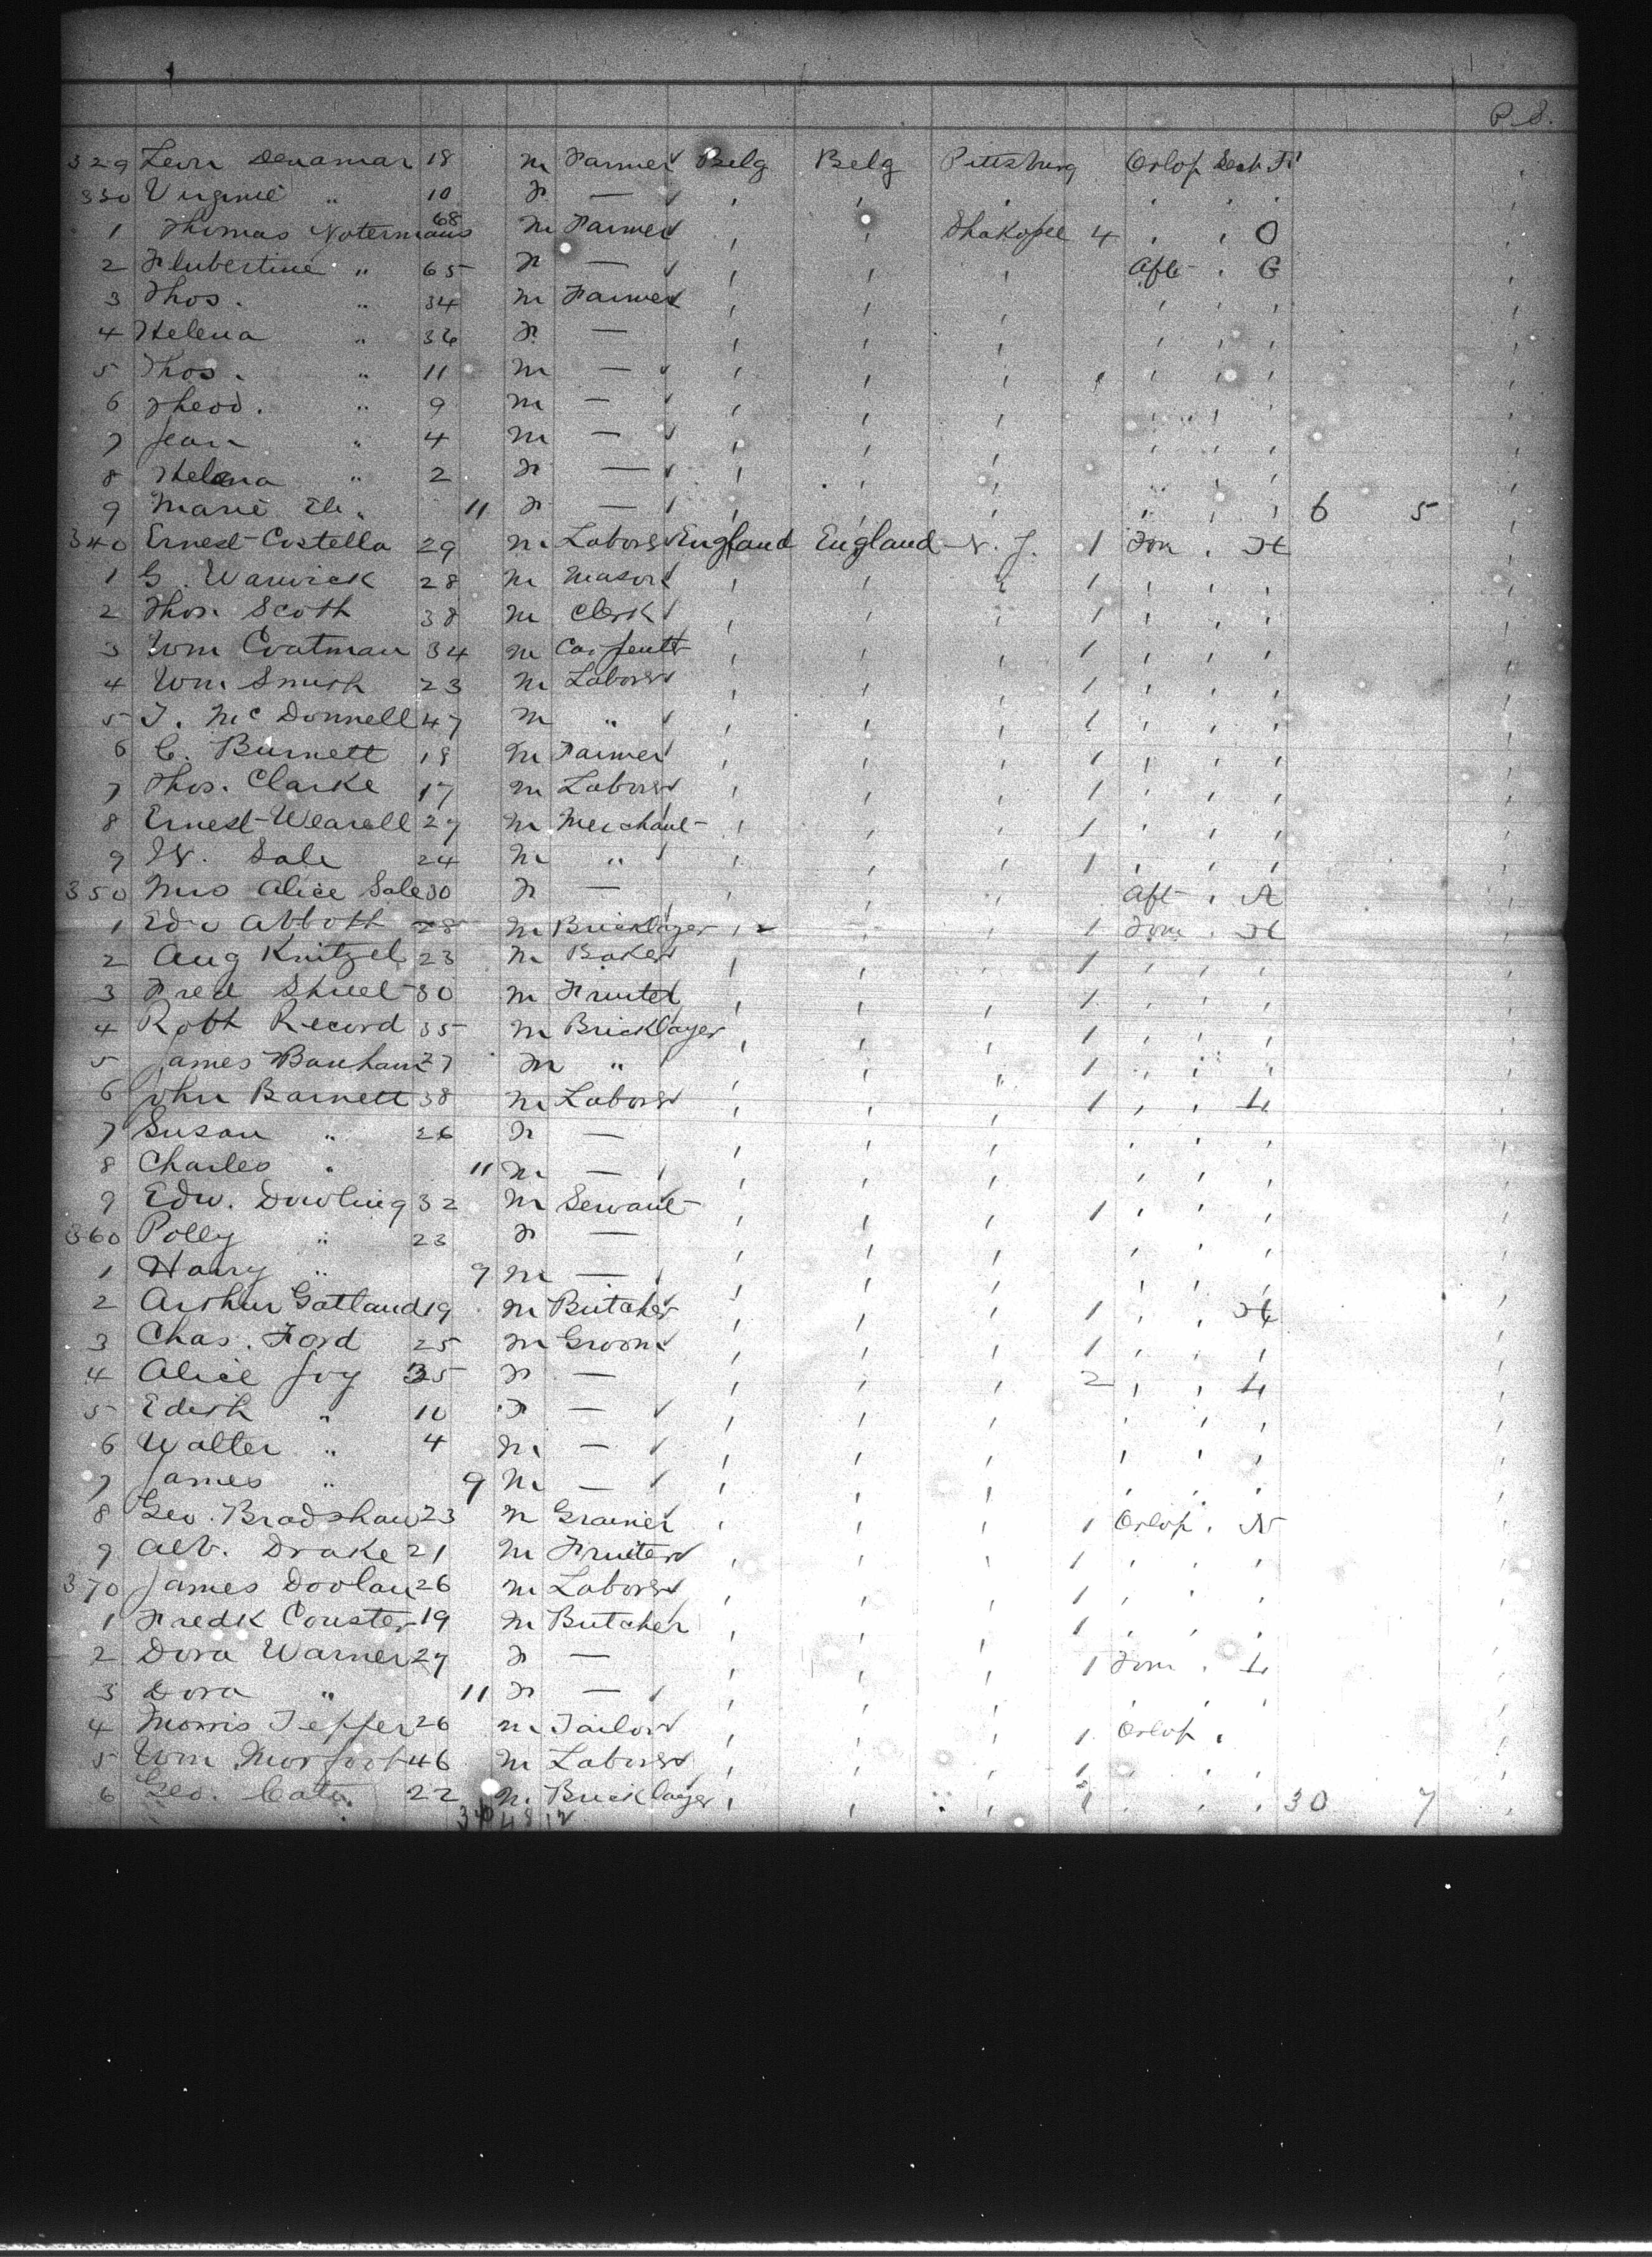 P.S.
329 Leon Denamar 18 m Farmer Belg Belg Pittsburg Orlop Deck F
330 Virginie " 10 F —
1 Thomas Notermans 68 m Farmer Shakopee 4 O
2 Hubertine " 65 F — Aft G
3 Thos. " 34 m Farmer
4 Helena " 36 F —
5 Thos. " 11 m —
6 Theod. " 9 m —
7 Jean " 4 m —
8 Helena " 2 F —
9 Marie 11 F — 6 5
340 Ernest Costella 29 m Laborer England England N. J. 1 Fon H
1 G. Warwick 28 m Mason 1
2 Thos. Scoth 38 m Clerk 1
3 Wm Coatman 34 m Carpenter 1
4 Wm Smith 23 m Laborer 1
5 T. McDonnell 47 m " 1
6 C. Burnett 18 m Farmer 1
7 Thos. Clarke 17 m Laborer 1
8 Ernest Wearell 27 m Merchant 1
9 W. Sale 24 m " 1
350 Mrs Alice Sale 30 F — Aft A
1 Edw Abboth 28 m Bricklayer 1 Fom H
2 Aug Knitzel 23 m Baker 1
3 Fred Shiel 30 m Fruiter 1
4 Robt Record 35 m Bricklayer 1
5 James Banham 27 m " 1
6 John Barnett 38 m Laborer 1 L
7 Susan " 26 F —
8 Charles " 11 m —
9 Edw. Dowling 32 m Servant 1
360 Polly " 23 F —
1 Harry " 9 m —
2 Arthur Gatland 19 m Butcher 1 H
3 Chas. Ford 25 m Groom 1
4 Alice Joy 35 F — 2 L
5 Edith " 10 F —
6 Walter " 4 m —
7 James " 9 m —
8 Geo. Bradshaw 23 m Grainer 1 Orlop N
9 Alb. Drake 21 m Fruiter 1
370 James Doolan 26 m Laborer 1
1 Fredk Couster 19 m Butcher 1
2 Dora Warner 27 F — 1 Fom L
3 Dora " 11 F —
4 Morris Tepper 26 m Tailor 1 Orlop
5 Wm Morfoot 46 m Laborer 1
6 Geo. Cate 22 m Bricklayer 1 30 7